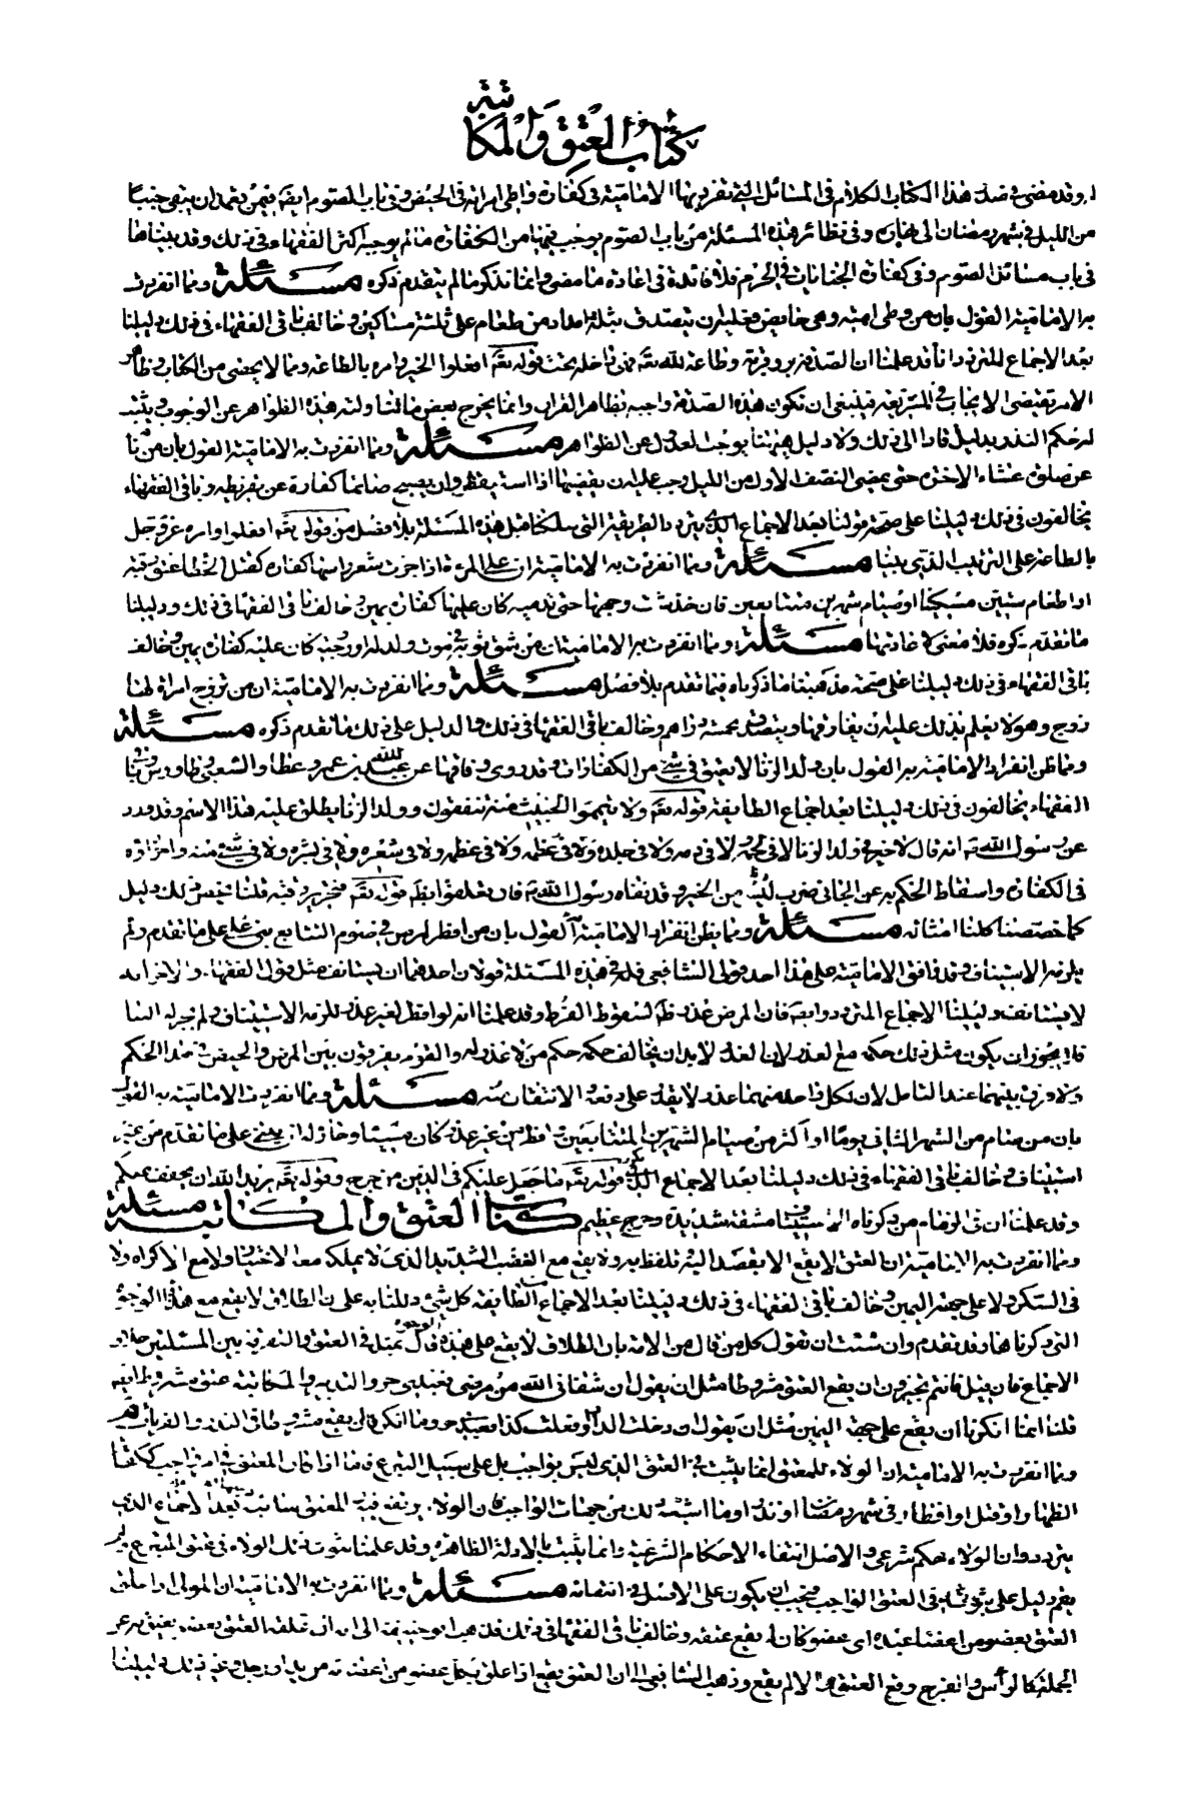 كتاب العتق والمكاتبة
وقد مضى في صدر هذا الكتاب الكلام في المسائل التي تنفرد بها الامامية في كفارة واطي امراته في الحيض وفي باب الصوم ايضا فيمن تعمد ان يبقى جنبا
من الليل في شهر رمضان الى نهاره وفي نظائر هذه المسئلة من باب الصوم يوجب فيها من الكفارة ما لم يوجبه اكثر الفقهاء في ذلك وقد بيناها
في باب مسائل الصوم وفي كفارة الجنايات في الحرم فلا فائدة في اعادة ما مضى وانما نذكر ما لم يتقدم ذكره مسئلة ومما انفردت
به الامامية القول بان من وطى امته وهي حايض فعليه ان يتصدق بثلثة امداد من طعام على ثلثة مساكين وخالف باقي الفقهاء في ذلك دليلنا
بعد الاجماع المتردد انا قد علمنا ان الصدقة بر وقربة وطاعة لله تعالى فهي داخلة تحت قوله تعالى افعلوا الخير وامره بالطاعة ومما لا يحصى من الكتاب وظاهر
الامر يقتضي الايجاب في الشريعة فينبغي ان تكون هذه الصدقة واجبة بظاهر القران وانما يخرج بعض ما تناولته هذه الظواهر عن الوجوب ويثبت
له حكم الندب بدليل قاد الى ذلك ولا دليل ههنا يوجب العدول عن الظواهر مسئلة ومما انفردت به الامامية القول بان من نا
عن صلوة عشاء الاخرة حتى يمضي النصف الاول من الليل وجب عليه ان يقضيها اذا استيقظ وان يصبح صائما كفارة عن تفريطه وباقي الفقهاء
يخالفون في ذلك دليلنا على صحة قولنا بعد الاجماع الذي يتردد الطريقة التي سلكنا قبل هذه المسئلة بلا فصل من قوله تعالى افعلوا وامره عز وجل
بالطاعة على الترتيب الذي بينا مسئلة ومما انفردت به الامامية ان على المرءة اذا جزت شعر راسها كفارة كفارة قتل الخطا عتق رقبة
او اطعام ستين مسكينا او صيام شهرين متتابعين فان خدشت وجهها حتى تدميه كان عليها كفارة يمين وخالف باقي الفقها في ذلك ودليلنا
ما تقدم ذكره فلا معنى لاعادتها مسئلة ومما انفردت به الامامية ان من شق ثوبه في موت ولد له او زوجته كان عليه كفارة يمين وخالف
باقي الفقهاء في ذلك ودليلنا على صحة مذهبنا ما ذكرناه فيما تقدم بلا فصل مسئلة ومما انفردت به الامامية ان من تزوج امراة لها
زوج وهو لا يعلم بذلك عليه ان يفارقها ويتصدق بخمسة دراهم وخالف باقي الفقها في ذلك والدليل على ذلك ما تقدم ذكره مسئلة
ومما ظن انفراد الامامية به القول بان ولد الزنا لا يعتق في شئ من الكفارات وقد روى وفاقها عن عبد الله بن عمرو وعطا والشعبي وطاوس وباقي
الفقهاء يخالفون في ذلك دليلنا بعد اجماع الطايفة قوله تعالى ولا تيمموا الخبيث منه تنفقون وولد الزنا يطلق عليه هذا الاسم وقد ورد
عن رسول الله انه قال لا خير في ولد الزنا لا في لحمه ولا في دمه ولا في جلده ولا في عظمه ولا في شعره ولا في بشره ولا في شئ منه واجزاؤه
في الكفارة واسقاط الحكم به عن الجاني ضرب من الخير وقد نفاه رسول الله فان تعلقوا بظاهر قوله تعالى فتحرير رقبة قلنا نخص ذلك بدليل
كما خصصنا كلنا امثاله مسئلة ومما يظن انفراد الامامية به القول بان من افطر لمرض في صوم التتابع يبنى على ما تقدم ولم
يلزمه الاستيناف وقد وافق الامامية على هذا احد قولي الشافعي فله في هذه المسئلة قولان احدهما ان يستانف مثل قول الفقهاء والاخر انه
لا يستانف دليلنا الاجماع المتردد وايضا فان المرض عذر ظاهر لسقوط الفرض وقد علمنا انه لو افطر لغير عذر للزمه الاستيناف ولم يجز له البنا
فلا يجوز ان يكون مثل ذلك حكمه مع العذر لان العذر لا بد ان يخالف حكمه حكم من لا عذر له والقوم يفرقون بين المرض والحيض في هذا الحكم
ولا فرق بينهما عند التامل لان لكل واحد منهما عذر لا يقدر على دفعه الانتفاك منه مسئلة ومما انفردت الامامية به القول
بان من صام من الشهر الثاني يوما او اكثر من صيام الشهرين المتتابعين افطر من غير عذر كان مسيئا وجاز له ان يبنى على ما تقدم من غير
استيناف وخالف باقي الفقهاء في ذلك دليلنا بعد الاجماع قوله تعالى ما جعل عليكم في الدين من حرج وقوله تعالى يريد الله ان يخفف عنكم
وقد علمنا ان في الزام من ذكرناه الاستيناف مشقة شديدة وحرج عظيم كتاب العتق والمكاتبة مسئلة
ومما انفردت به الامامية ان العتق لا يقع الا بقصد اليه وتلفظ به ولا يقع مع الغضب الشديد الذي لا يملك معه الاختيار ولا مع الاكراه ولا
في السكر ولا على جهة اليمين وخالف باقي الفقهاء في ذلك دليلنا بعد الاجماع الطايفة كل شئ دللنا به على ان الطلاق لا يقع مع هذه الوجوه
التي ذكرناها وقد تقدم وان شئت ان تقول كل من قال من الامة بان الطلاق لا يقع على هذه الوجوه قال بمثله في العتق والتفرقة بين المسئلتين خلاف
الاجماع فان قيل فانتم تجيزون ان يقع العتق مشروطا مثل ان يقول ان شفاني الله من مرضي فعبدي حر والتدبير والمكاتبة عتق بشروط ايضا
قلنا انما انكرنا ان يقع على جهة اليمين مثل ان يقول ان دخلت الدار او فعلت كذا فعبدي حر وما انكرنا ان يقع مشروطا في النذور والقربات
ومما انفردت به الامامية ان الولاء للمعتق انما يثبت في العتق الذي ليس بواجب بل على سبيل التبرع فاما اذا كان المعتق في امر واجب ككفارة
الظهار او قتل او افطار في شهر رمضان او نذر او ما اشبه ذلك من جهات الواجب فان الولاء يرتفع فيه المعتق سائبة دليلنا بعد الاجماع الذي
يتردد وان الولاء حكم شرعي والاصل انتفاء الاحكام الشرعية وانما يثبت بالادلة الظاهرة وقد علمنا ثبوت ذلك الولاء في عتق المتبرع ولم
يقم دليل على ثبوته في العتق الواجب فيجب ان يكون على الاصل في انتفائه مسئلة ومما انفردت به الامامية ان الموالي اذا علق
العتق بعضو من اعضاء عبده اي عضو كان لم يقع عتقه وخالف باقي الفقها في ذلك فذهب ابو حنيفة الى انه ان علقه العتق بعضو يعبر به عن
الجملة كالراس والفرج وقع العتق والا لم يقع وذهب الشافعي الى ان العتق يقع اذا علق بكل عضو من اعضائه من يد او رجل وغير ذلك دليلنا